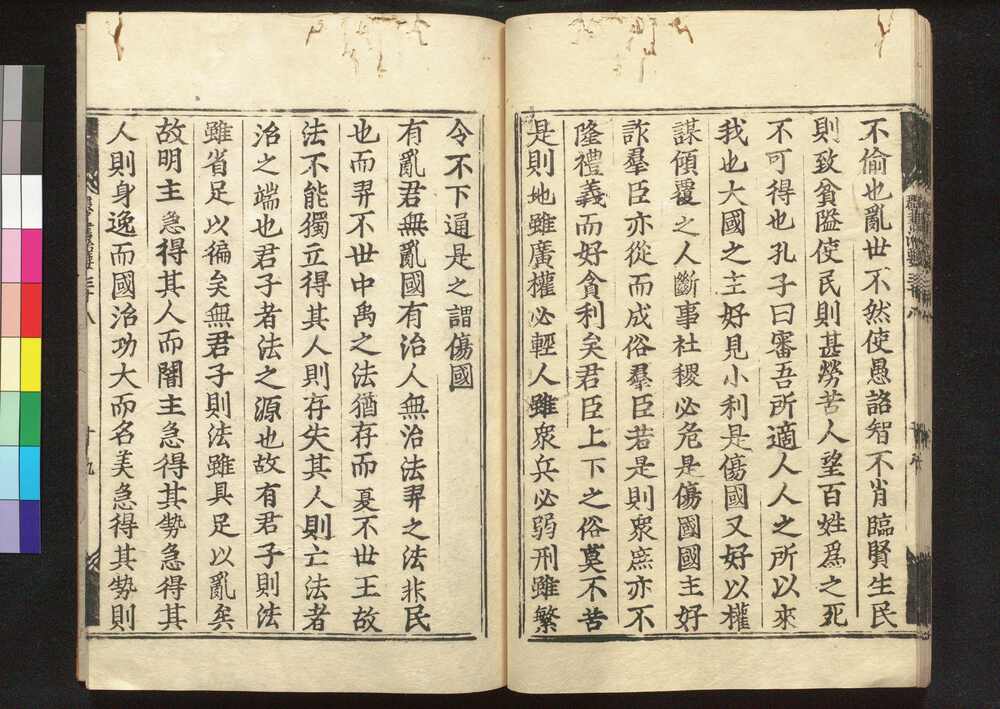 不偷也亂世不然使愚詔智不肖臨賢生民
則致貧隘使民則甚勞苦人望百姓爲之死
不可得也孔子曰審吾所適人人之所以來
我也大國之主好見小利是傷國又好以權
謀傾覆之人斷事社稷必危是傷國國主好
詐羣臣亦從而成俗羣臣若是則衆庶亦不
隆禮義而好貪利矣君臣上下之俗莫不苦
是則地雖廣權必輕人雖衆兵必弱刑雖繁
令不下通是之謂傷國
有亂君無亂國有治人無治法羿之法非民
也而羿不世中禹之法猶存而夏不世王故
法不能獨立得其人則存失其人則亡法者
治之端也君子者法之源也故有君子則法
雖省足以徧矣無君子則法雖具足以亂矣
故明主急得其人而闇主急得其勢急得其
人則身逸而國治功大而名美急得其勢則
羣書治要三十八
十九